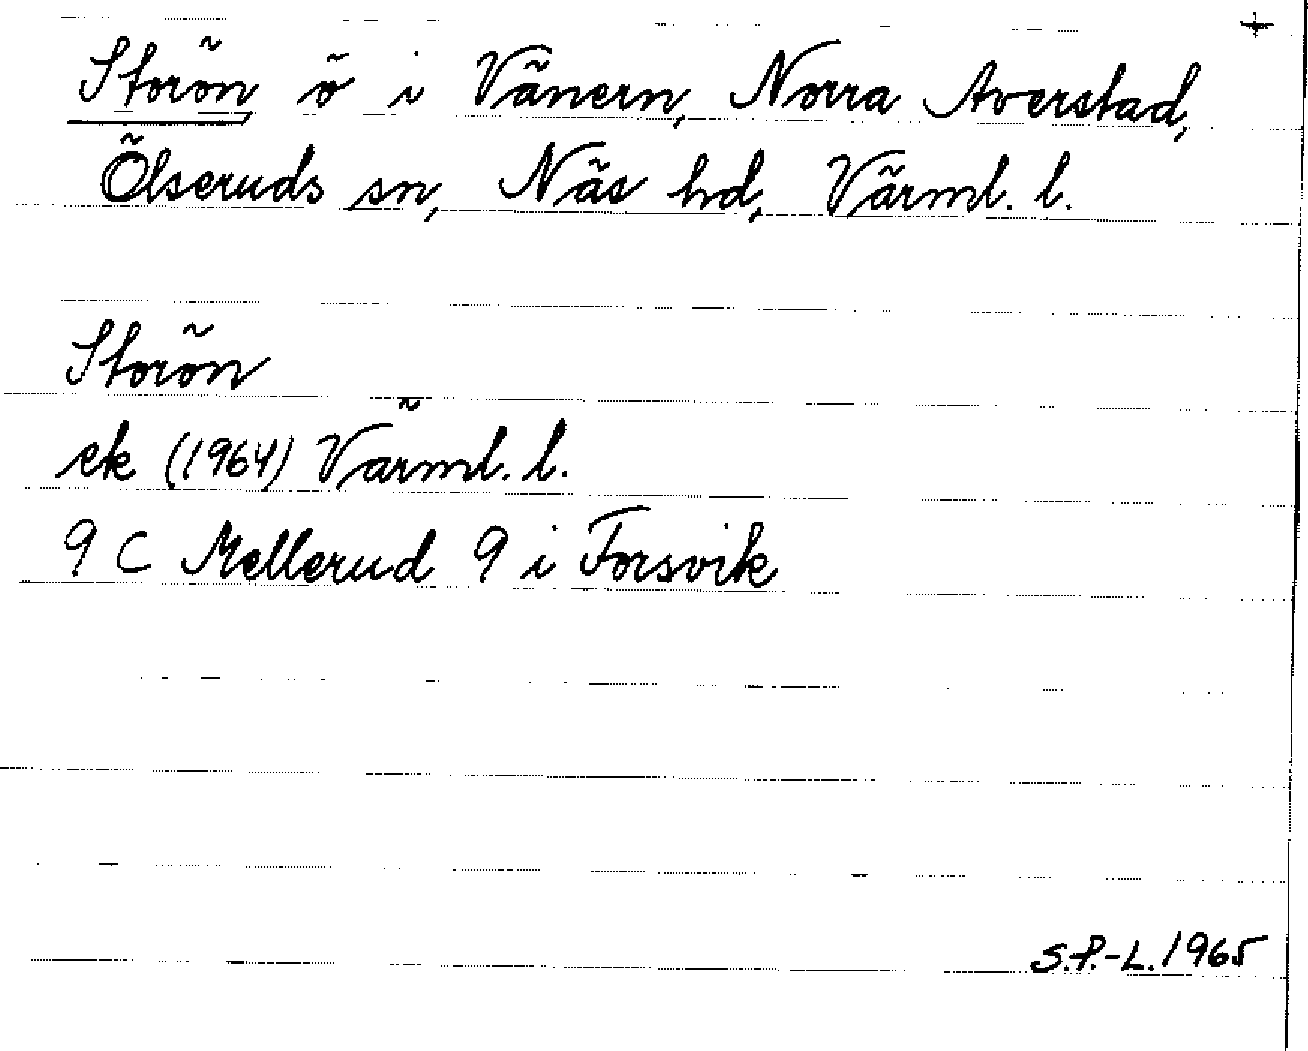 Storön ö i Vänern, Norra Averstad,
Ölseruds sn, Näs hd, Värml. l.
Storön
ek (1964) Värml. l.
9 C Mellerud 9 i Forsvik
S.P.-L. 1965